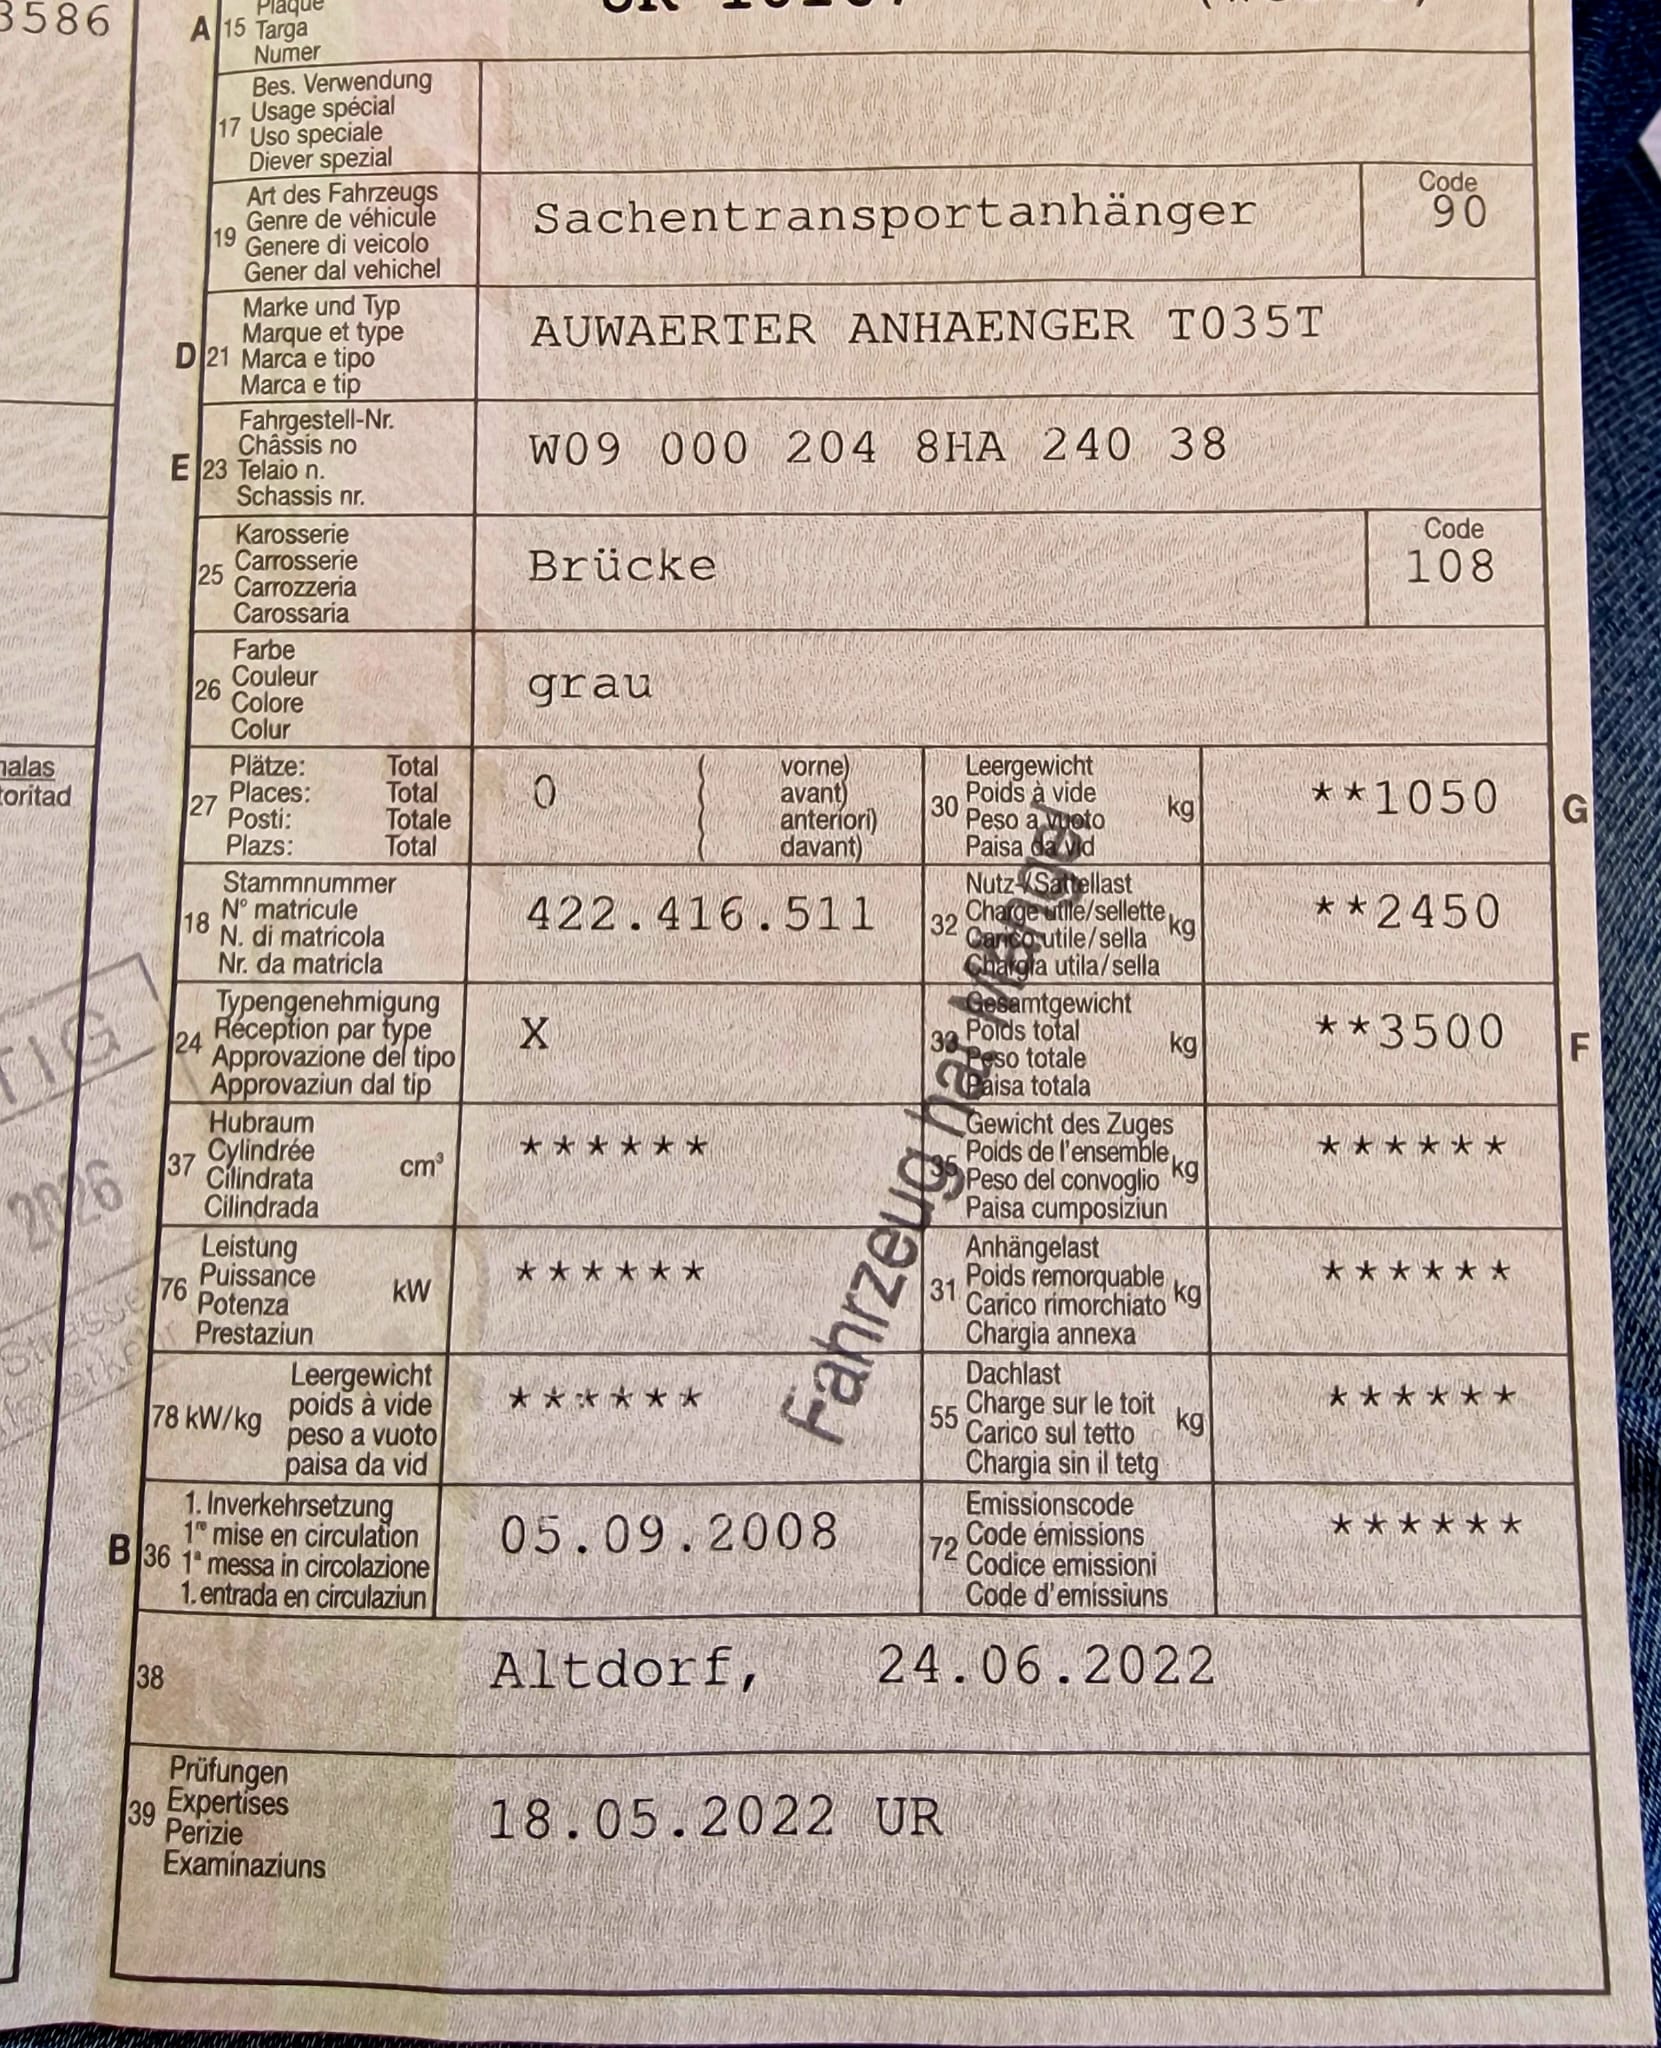 3586
A 15 Plaque
Targa
Numer
17 Bes. Verwendung
Usage spécial
Uso speciale
Diever spezial
19 Art des Fahrzeugs
Genre de véhicule
Genere di veicolo
Gener dal vehichel
Sachentransportanhänger
Code
90
D 21 Marke und Typ
Marque et type
Marca e tipo
Marca e tip
AUWAERTER ANHAENGER T035T
E 23 Fahrgestell-Nr.
Châssis no
Telaio n.
Schassis nr.
W09 000 204 8HA 240 38
25 Karosserie
Carrosserie
Carrozzeria
Carossaria
Brücke
Code
108
26 Farbe
Couleur
Colore
Colur
grau
nalas
toritad
27 Plätze: Total
Places: Total
Posti: Totale
Plazs: Total
0
( vorne)
( avant)
( anteriori)
( davant)
30 Leergewicht
Poids à vide
Peso a vuoto
Paisa da vid
kg
**1050
G
18 Stammnummer
N° matricule
N. di matricola
Nr. da matricla
422.416.511
32 Nutz-/Sattellast
Charge utile/sellette
Carico utile/sella
Chargia utila/sella
kg
**2450
24 Typengenehmigung
Réception par type
Approvazione del tipo
Approvaziun dal tip
X
33 Gesamtgewicht
Poids total
Peso totale
Paisa totala
kg
**3500
F
37 Hubraum
Cylindrée
Cilindrata
Cilindrada
cm³
******
35 Gewicht des Zuges
Poids de l'ensemble
Peso del convoglio
Paisa cumposiziun
kg
******
76 Leistung
Puissance
Potenza
Prestaziun
kW
******
31 Anhängelast
Poids remorquable
Carico rimorchiato
Chargia annexa
kg
******
78 kW/kg
Leergewicht
poids à vide
peso a vuoto
paisa da vid
******
55 Dachlast
Charge sur le toit
Carico sul tetto
Chargia sin il tetg
kg
******
B 36 1. Inverkehrsetzung
1re mise en circulation
1a messa in circolazione
1. entrada en circulaziun
05.09.2008
72 Emissionscode
Code émissions
Codice emissioni
Code d'emissiuns
******
38
Altdorf, 24.06.2022
39 Prüfungen
Expertises
Perizie
Examinaziuns
18.05.2022 UR
Fahrzeug hat Mängel
TIG
2026